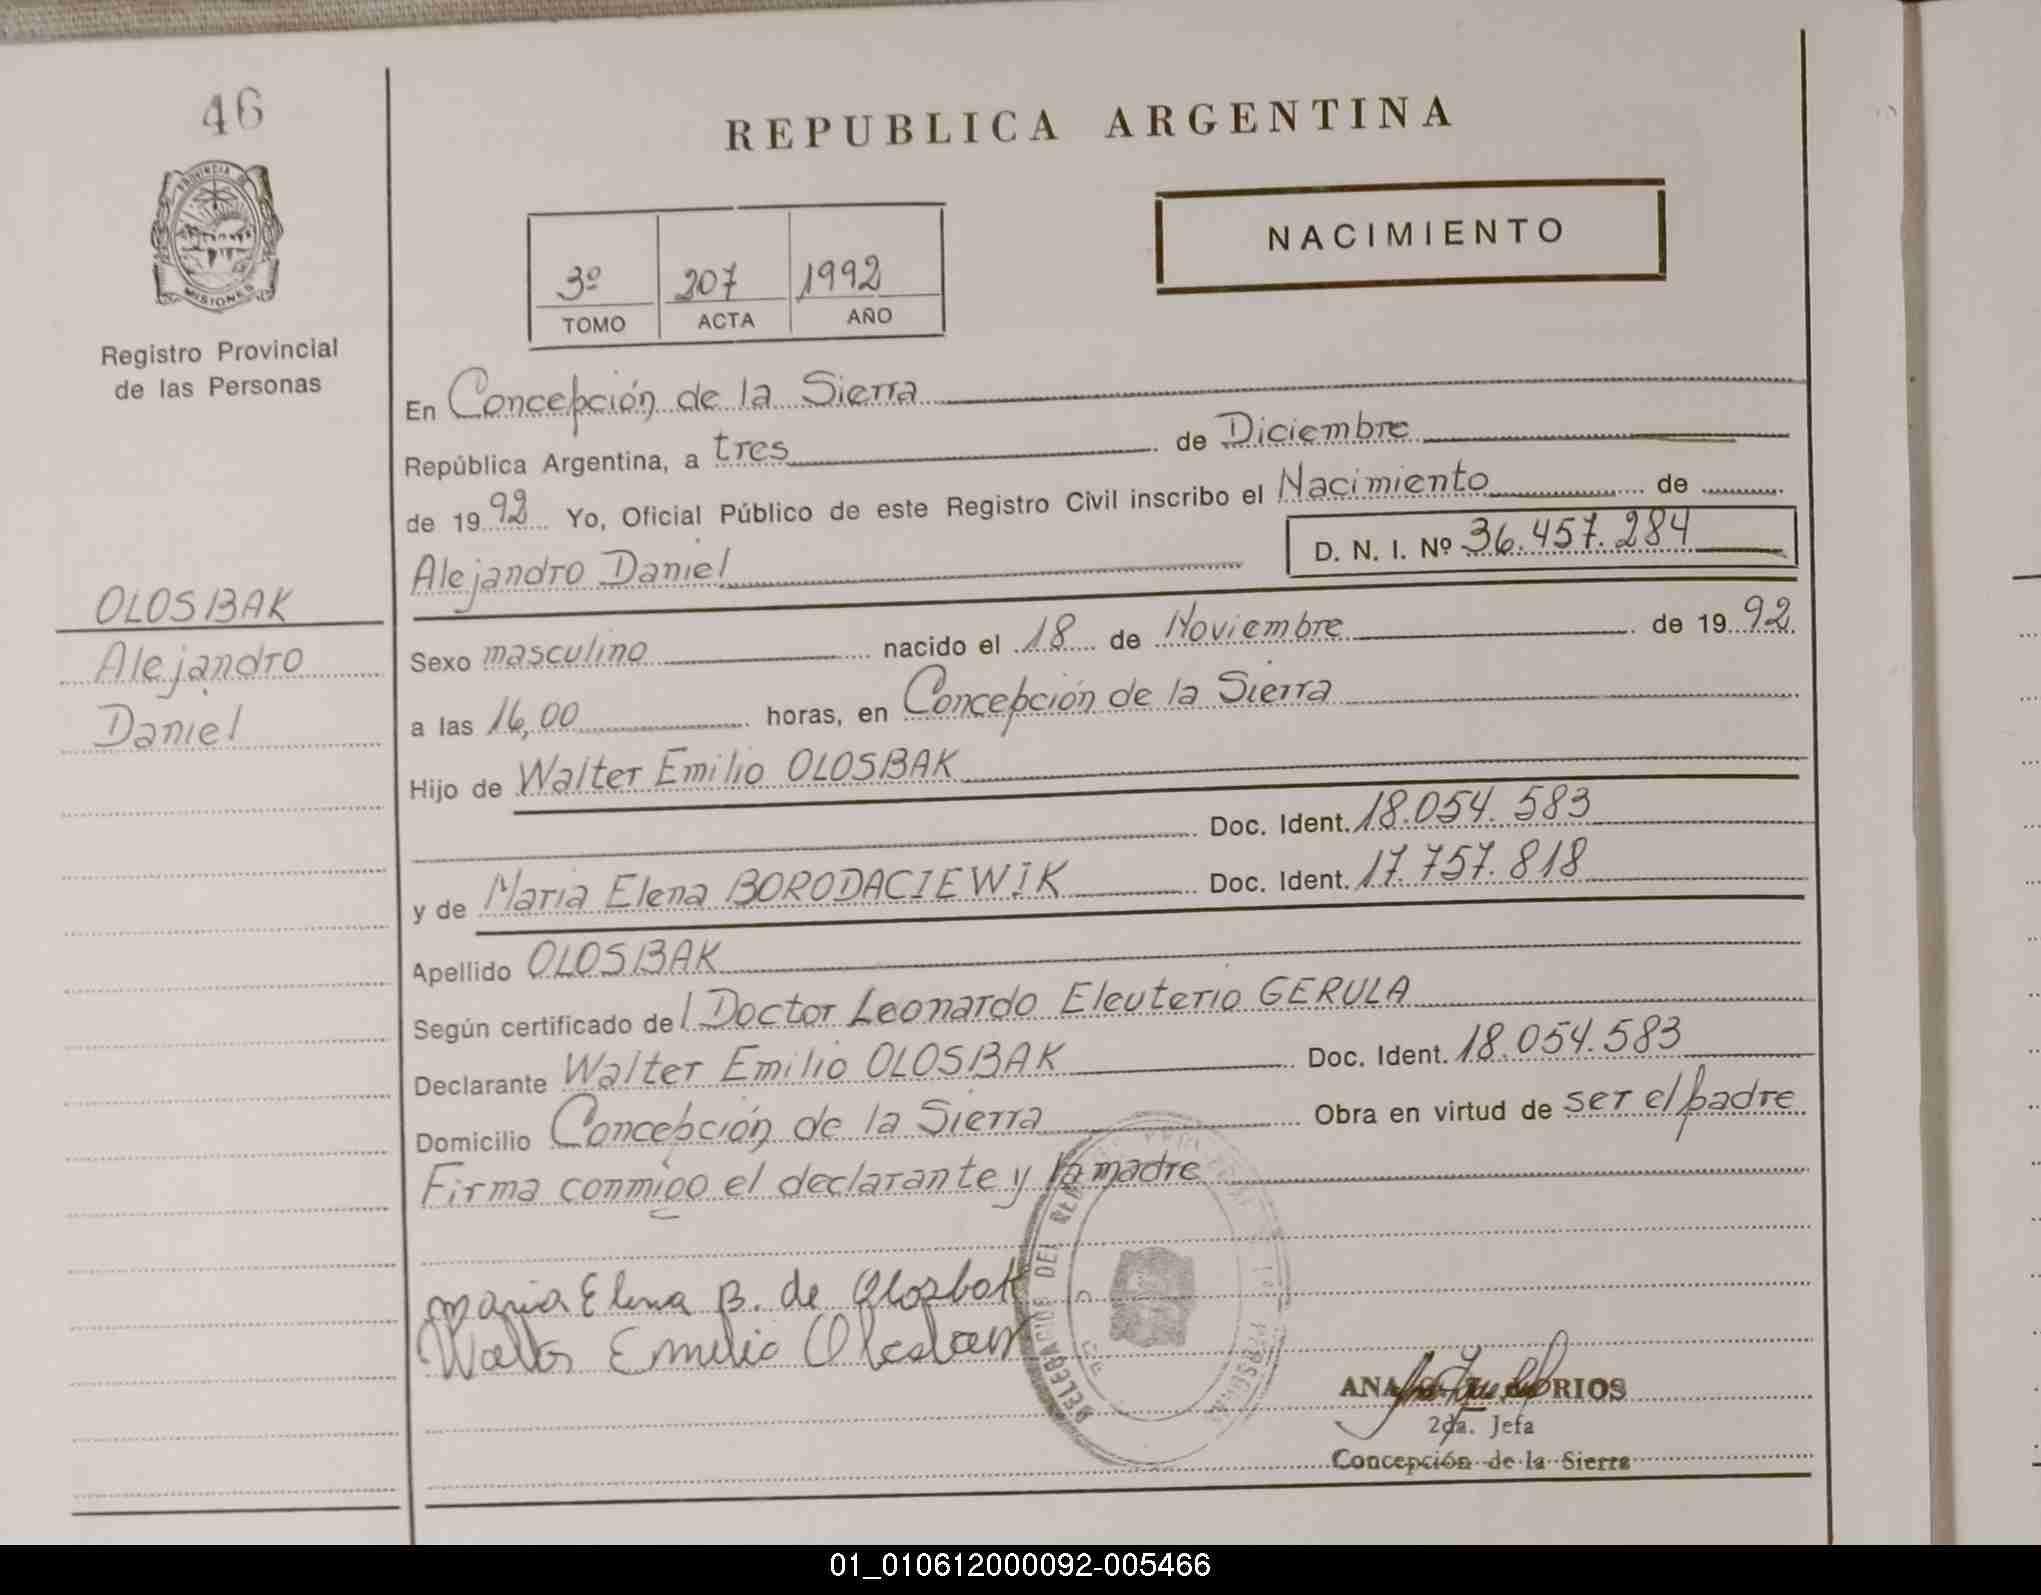 46
REPUBLICA ARGENTINA
NACIMIENTO
PROVINCIA DE
MISIONES
Registro Provincial
de las Personas
3º 207 1992
TOMO ACTA AÑO
En Concepción de la Sierra
República Argentina, a tres de Diciembre
de 1992 Yo, Oficial Público de este Registro Civil inscribo el Nacimiento de
Alejandro Daniel D. N. I. Nº 36.457.284
OLOSBAK
Alejandro
Daniel
Sexo masculino nacido el 18 de Noviembre de 1992
a las 16,00 horas, en Concepción de la Sierra
Hijo de Walter Emilio OLOSBAK
Doc. Ident. 18.054.583
y de Maria Elena BORODACIEWIK Doc. Ident. 17.757.818
Apellido OLOSBAK
Según certificado del Doctor Leonardo Eleuterio GERULA
Declarante Walter Emilio OLOSBAK Doc. Ident. 18.054.583
Domicilio Concepción de la Sierra Obra en virtud de ser el padre
Firma conmigo el declarante y la madre
maria Elena B. de Olosbak
Walter Emilio
DELEGACION DEL
ANA RIOS
2da. Jefa
Concepción de la Sierra
01_010612000092-005466